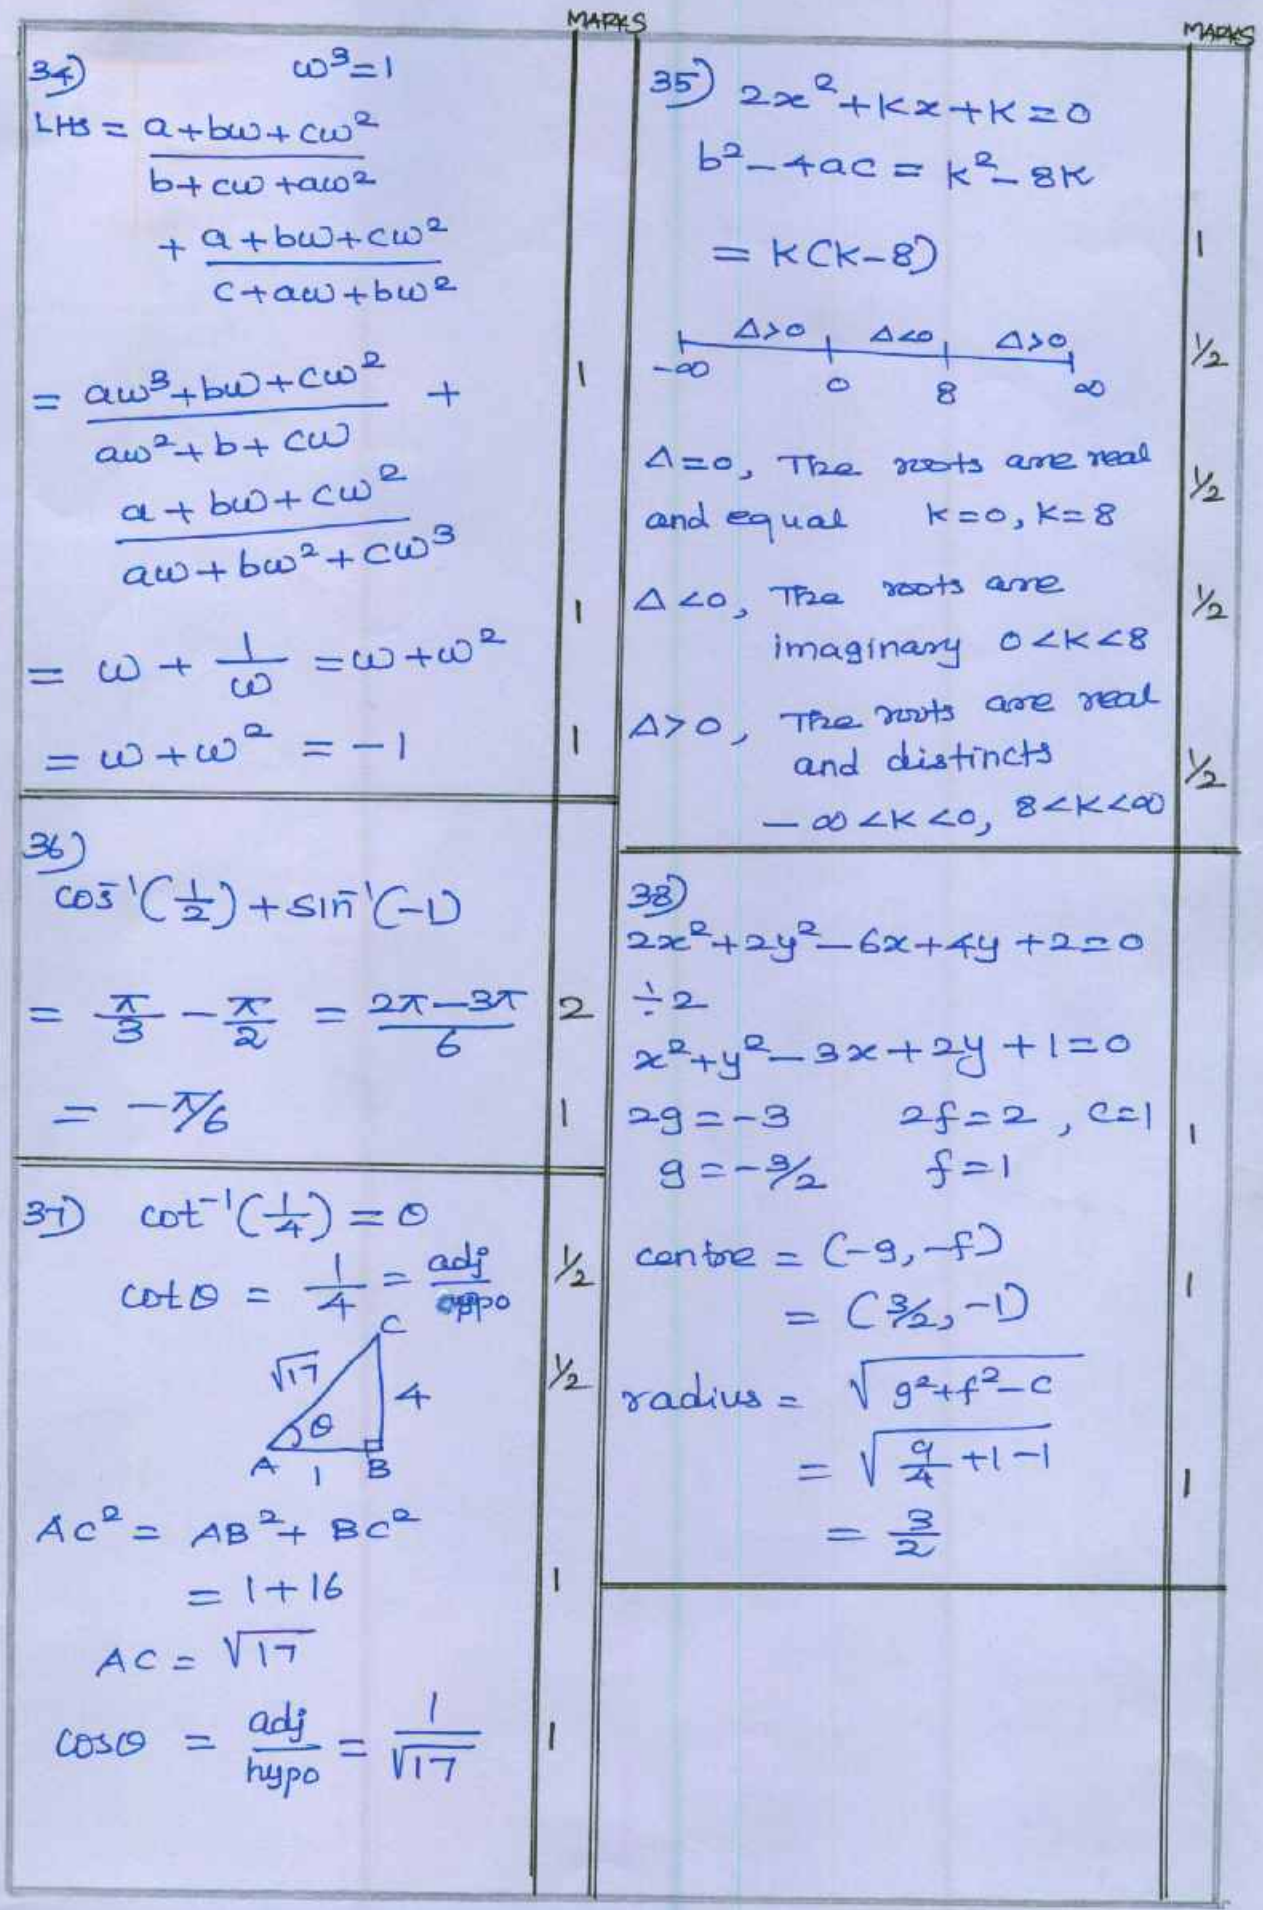 MARKS
34) ω³=1
LHS = (a+bω+cω²)/(b+cω+aω²)
+ (a+bω+cω²)/(c+aω+bω²)
= (aω³+bω+cω²)/(aω²+b+cω) + 1
(a+bω+cω²)/(aω+bω²+cω³)
1
= ω + 1/ω = ω+ω²
= ω+ω² = -1 1
36)
cos⁻¹(1/2)+sin⁻¹(-1)
= π/3 - π/2 = (2π-3π)/6 2
= -π/6 1
37) cot⁻¹(1/4) = θ
cotθ = 1/4 = adj/oppo 1/2
C
√17 4 1/2
θ
A 1 B
AC² = AB²+BC²
= 1+16 1
AC = √17
cosθ = adj/hypo = 1/√17 1
MARKS
35) 2x²+Kx+K=0
b²-4ac = K²-8K
= K(K-8) 1
Δ>0 Δ<0 Δ>0 1/2
-∞ 0 8 ∞
Δ=0, The roots are real 1/2
and equal K=0, K=8
Δ<0, The roots are 1/2
imaginary 0<K<8
Δ>0, The roots are real
and distincts 1/2
-∞<K<0, 8<K<∞
38)
2x²+2y²-6x+4y+2=0
÷2
x²+y²-3x+2y+1=0
2g=-3 2f=2, c=1 1
g=-3/2 f=1
centre = (-g,-f)
= (3/2,-1) 1
radius = √(g²+f²-c)
= √(9/4+1-1) 1
= 3/2